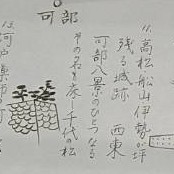 可部
11.高松 船山 伊勢ヶ坪
残る城跡 西東
可部八景のひとつなる
その名も床し千代の松